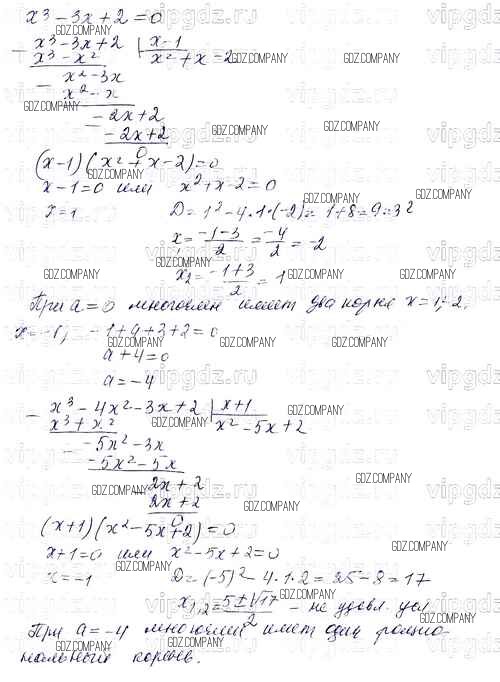 x³ - 3x + 2 = 0
x³ - 3x + 2 | x - 1
x³ - x² x² + x = 2
x² - 3x
x² - x
- 2x + 2
- 2x + 2
0
(x-1)(x² + x - 2) = 0
x - 1 = 0 или x² + x - 2 = 0
x = 1 D = 1² - 4·1·(-2) = 1 + 8 = 9 = 3²
x = (-1-3)/2 = -4/2 = -2
x₂ = (-1+3)/2 = 1
При a = 0 многочлен имеет два корня x = 1; -2.
x = -1, -1 + a + 3 + 2 = 0
a + 4 = 0
a = -4
x³ - 4x² - 3x + 2 | x + 1
x³ + x² x² - 5x + 2
- 5x² - 3x
- 5x² - 5x
2x + 2
2x + 2
0
(x+1)(x² - 5x + 2) = 0
x + 1 = 0 или x² - 5x + 2 = 0
x = -1 D = (-5)² - 4·1·2 = 25 - 8 = 17
x₁,₂ = (5 ± √17)/2 - не удовл. усл
При a = -4 многочлен имеет один рацио-
нальный корень.
GDZ.COMPANY
vipgdz.ru